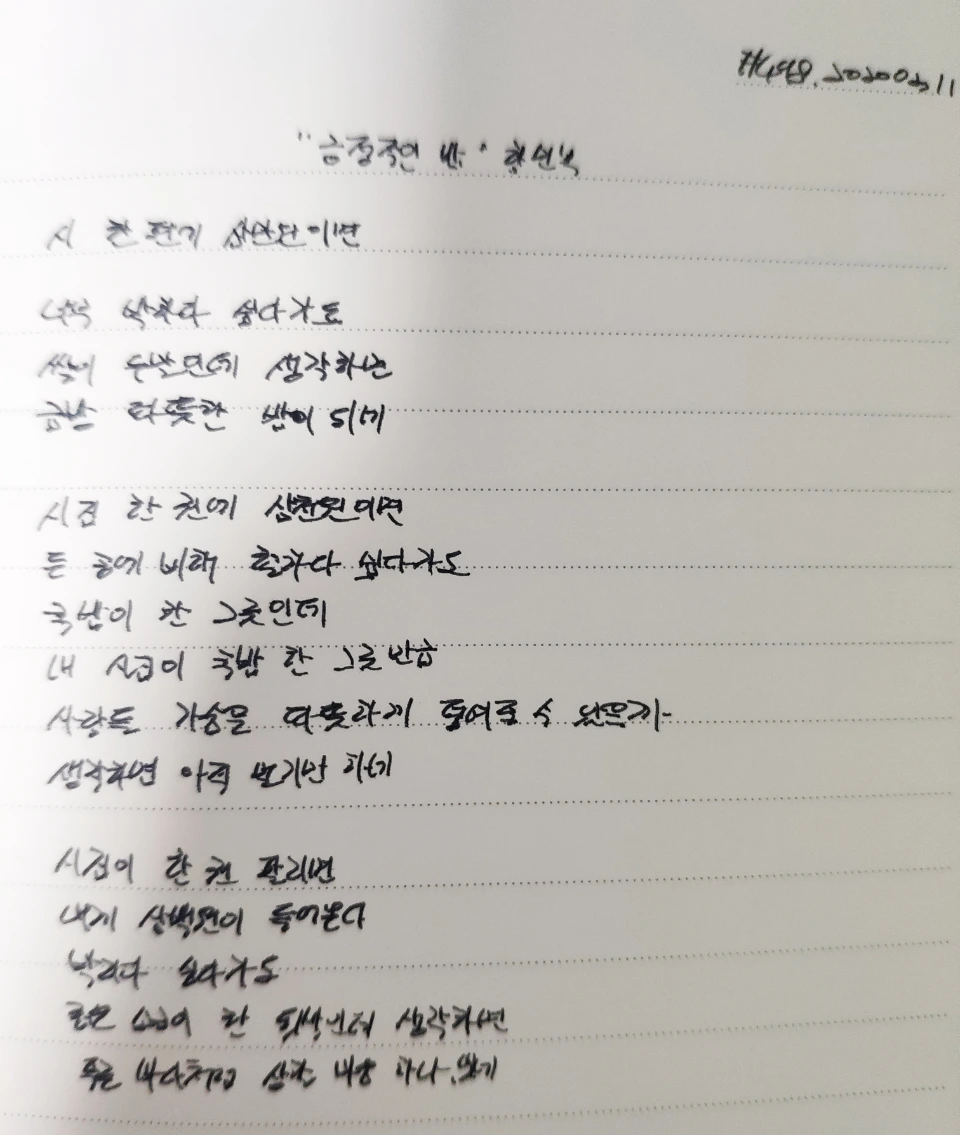 "긍정적인 밥" 함민복
시 한 편에 삼만원이면
너무 박하다 싶다가도
쌀이 두말인데 생각하면
금방 따뜻한 밥이 되네
시집 한 권에 삼천원이면
든 공에 비해 헐하다 싶다가도
국밥이 한 그릇인데
내 시집이 국밥 한 그릇만큼
사람들 가슴을 따뜻하게 수 있을까
생각하면 아직 멀기만 하네
시집이 한 권 팔리면
내게 삼백원이 돌아온다
박리다 싶다가도
굵은 소금이 한 됫박인데 생각하면
푸른 바다처럼 상할 마음 하나 없네